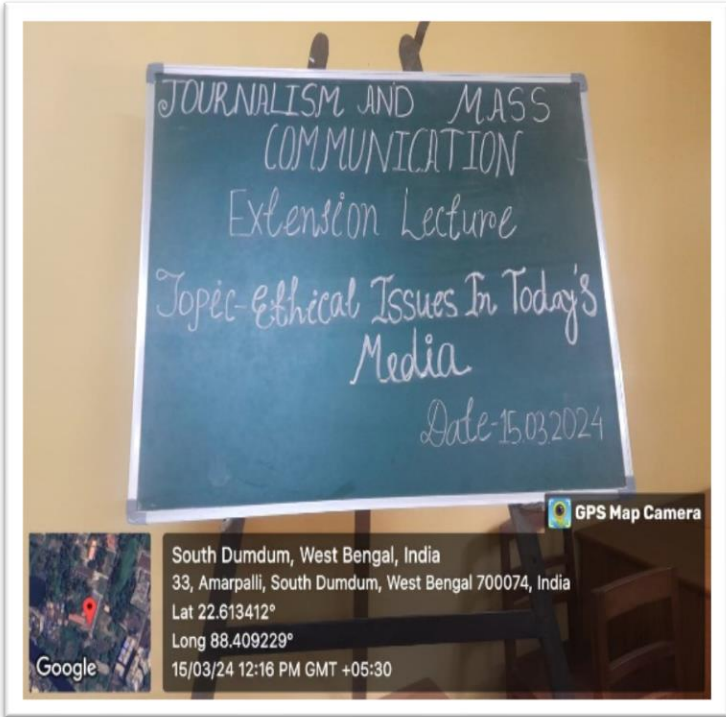 JOURNALISM AND MASS
COMMUNICATION
Extension Lecture
Topic-Ethical Issues In Today's
Media
Date-15.03.2024
GPS Map Camera
South Dumdum, West Bengal, India
33, Amarpalli, South Dumdum, West Bengal 700074, India
Lat 22.613412°
Long 88.409229°
15/03/24 12:16 PM GMT +05:30
Google